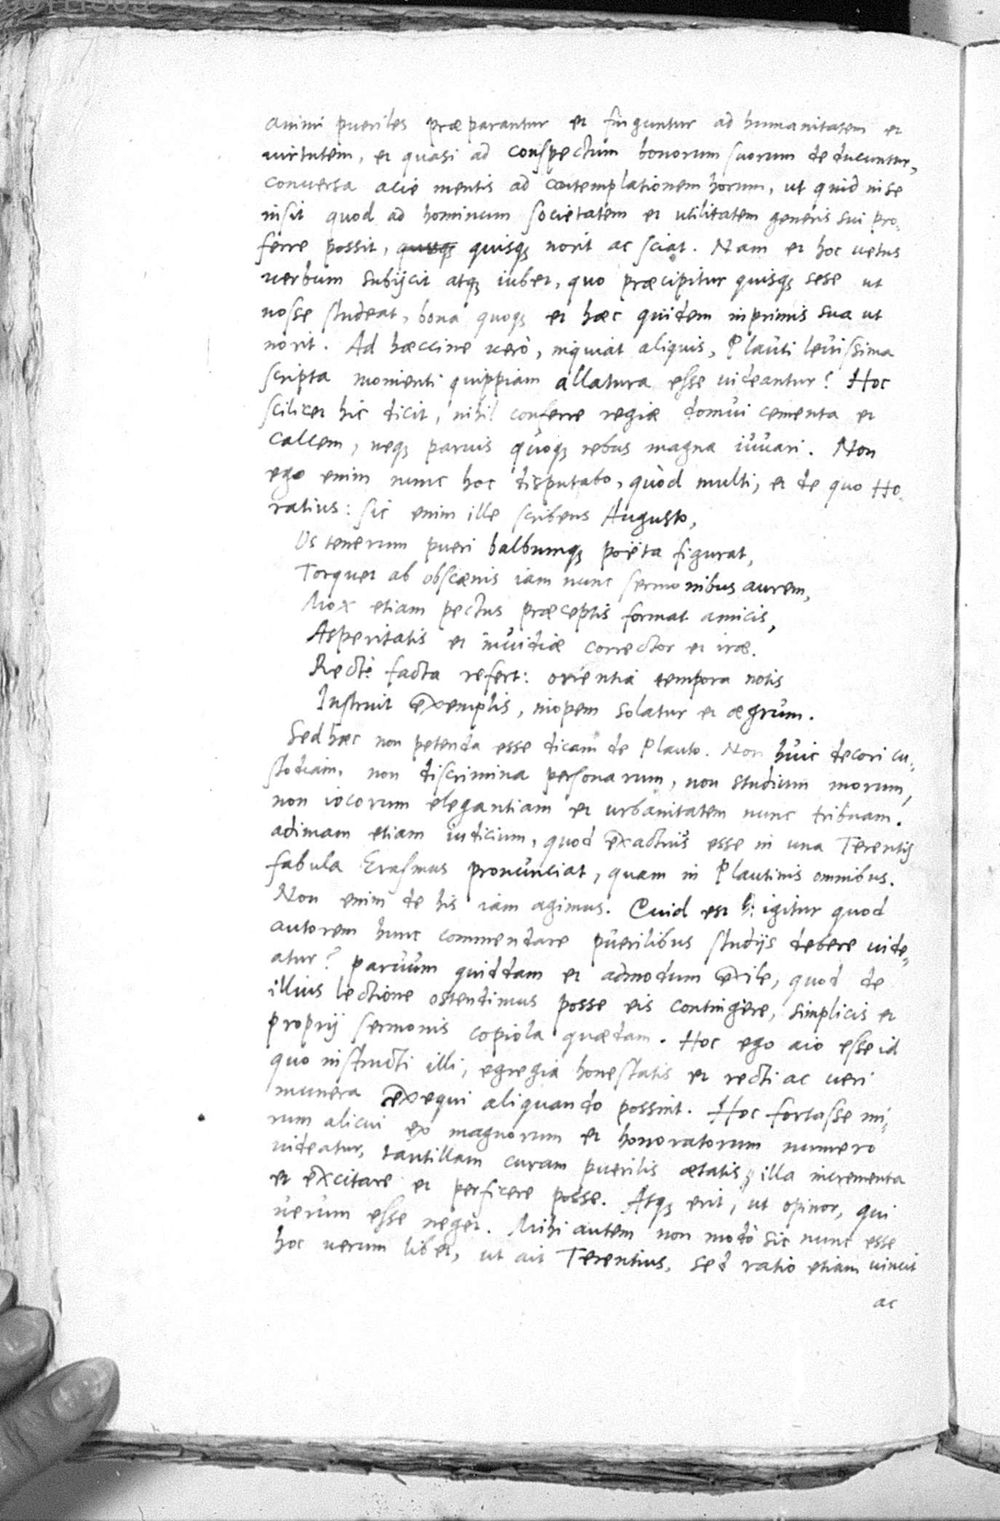 animi pueriles præparantur et finguntur ad humanitatem et
virtutem, et quasi ad conspectum bonorum suorum deducuntur,
conversa acie mentis ad contemplationem horum, ut quid in se
insit quod ad hominum societatem et utilitatem generis sui pro-
ferre possit, quisq; norit ac sciat. Nam et hoc vetus
verbum subijcit atq; iubet, quo præcipitur quisq; sese ut
nosse studeat, bona quoq; et hæc quidem inprimis sua ut
norit. Ad hæccine verò, inquiat aliquis, Plauti levissima
scripta momenti quippiam allatura esse videantur? Hoc
scilicet hic dicit, nihil conferre regiæ domui cementa et
calcem, neq; parvis quoq; rebus magna iuvari. Non
ego enim nunc hoc disputabo, quòd multi, et de quo Ho-
ratius: sic enim ille scribens Augusto,
Os tenerum pueri balbumq; poëta figurat,
Torquet ab obscænis iam nunc sermonibus aurem,
Mox etiam pectus præceptis format amicis,
Asperitatis et invidiæ corrector et iræ.
Rectè facta refert: orientia tempora notis
Instruit exemplis, inopem solatur et ægrum.
Sed hæc non petenda esse dicam de Plauto. Non huic decori cu-
stodiam, non discrimina personarum, non studium morum,
non iocorum elegantiam et urbanitatem nunc tribuam.
adimam etiam iudicium, quod exactius esse in una Terentij
fabula Erasmus pronunciat, quam in Plautinis omnibus.
Non enim de his iam agimus. Quid est igitur quod
autorem hunc commendare puerilibus studijs debere vide-
atur? parvum quiddam et admodum exile, quod de
illius lectione ostendimus posse eis contingere, simplicis et
proprij sermonis copiola quædam. Hoc ego aio esse id
quo instructi illi, egregia honestatis et recti ac veri
munera exequi aliquando possint. Hoc fortasse mi-
rum alicui ex magnorum et honoratorum numero
videatur, tantillam curam puerilis ætatis, illa incrementa
et excitare et perficere posse. Atq; erit, ut opinor, qui
verum esse neget. Mihi autem non modò sic nunc esse
hoc verum libet, ut ait Terentius, sed ratio etiam vincit
ac